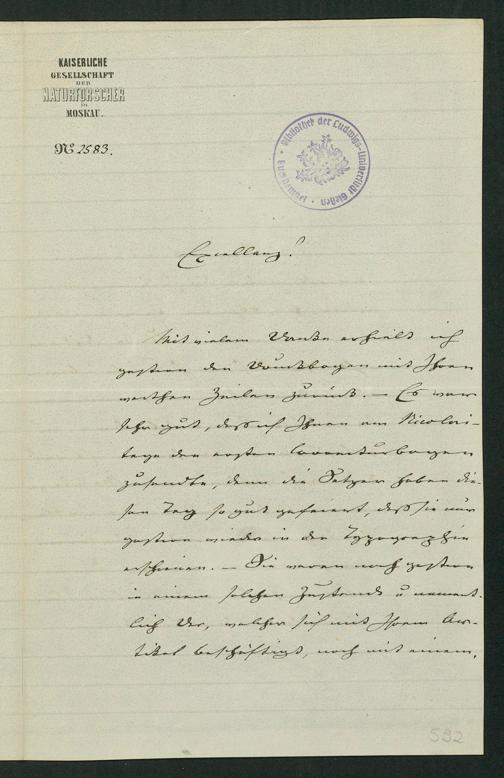 KAISERLICHE
GESELLSCHAFT
DER
NATURFORSCHER
in
MOSKAU.
No 2583.
Bibliothek der Ludwigs-Universität Gießen
Excellenz!
Mit vielem Danke erhielt ich
gestern den Druckbogen mit Ihren
werthen Zeilen zurück. — Es war
sehr gut, daß ich Ihnen am Nicolai-
tage den ersten Correcturbogen
zusendte, denn die Setzer haben die-
sen Tag so gut gefeiert, daß sie nur
gestern wieder in der Typographie
erschienen. — Sie waren noch gestern
in einem solchen Zustande u nament-
lich der, welcher sich mit Ihrem Ar-
tikel beschäftigt, noch mit einem,
592